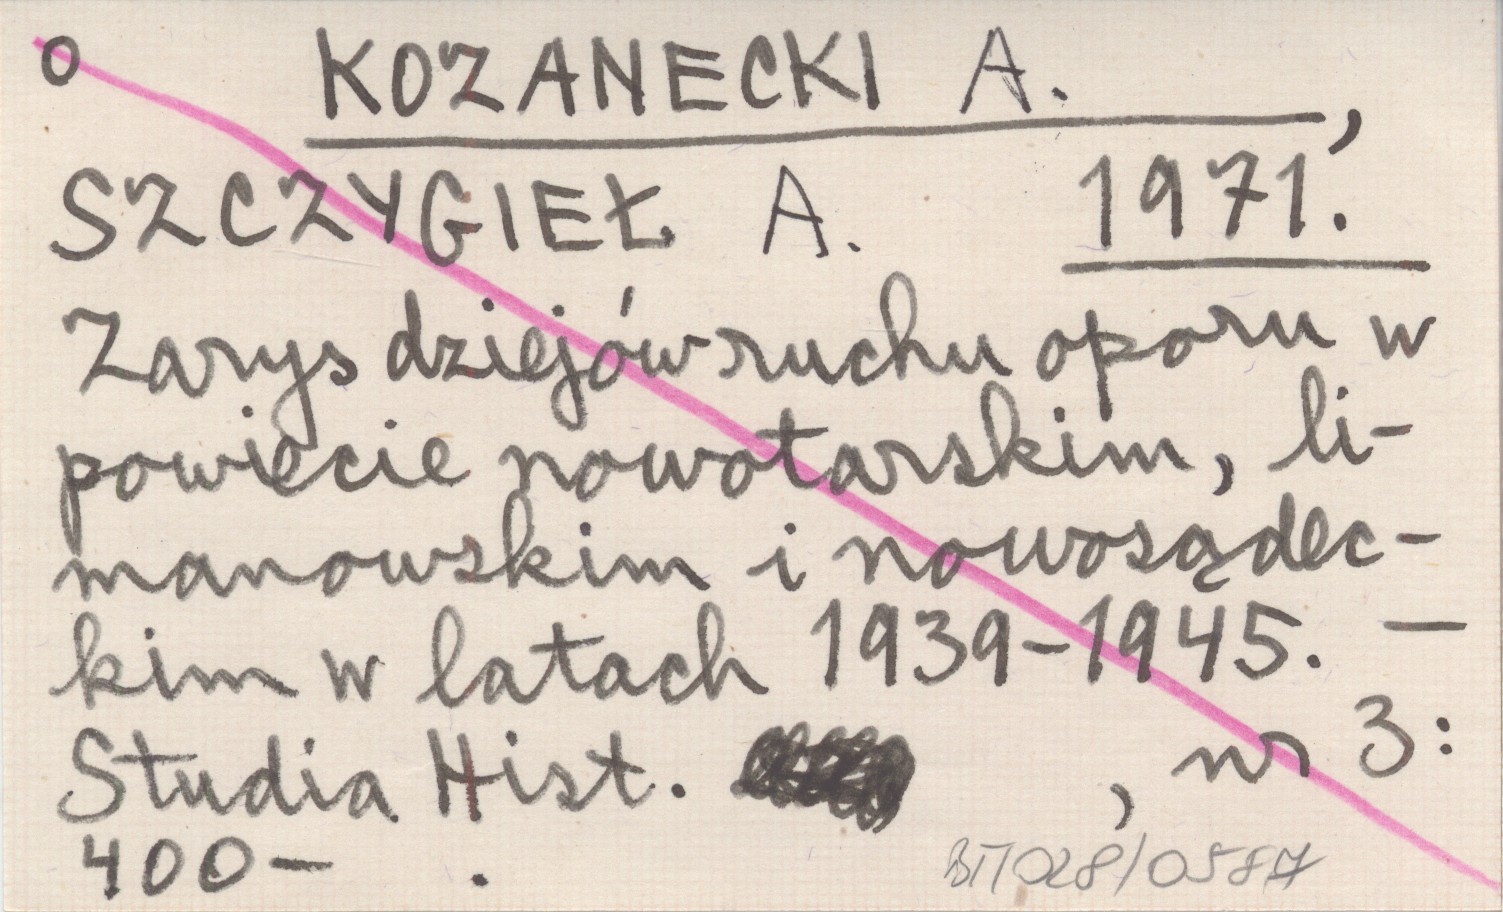 o KOZANECKI A.,
SZCZYGIEŁ A. 1971.
Zarys dziejów ruchu oporu w
powiecie nowotarskim, li-
manowskim i nowosądec-
kim w latach 1939-1945. —
Studia Hist. , nr 3:
400— .
BT/028/0587